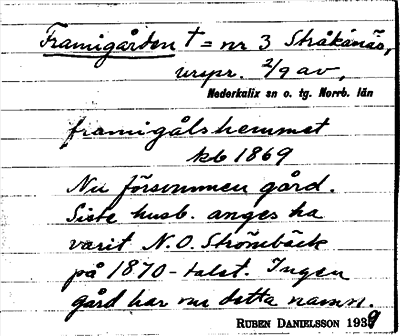 Framigården † = nr 3 Stråkanäs,
urspr. 2/9 av,
Nederkalix sn o. tg. Norrb. län
framigålshemmet
kb 1869
Nu försvunnen gård.
Siste husb. anges ha
varit N.O. Strömbäck
på 1870-talet. Ingen
gård har nu detta namn.
RUBEN DANIELSSON 1939